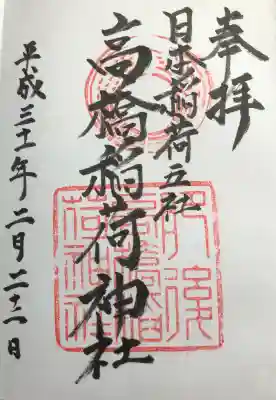 奉拝
日本稲荷五社
高橋稲荷神社
平成三十一年二月二十二日
肥後
高橋稲
荷神社